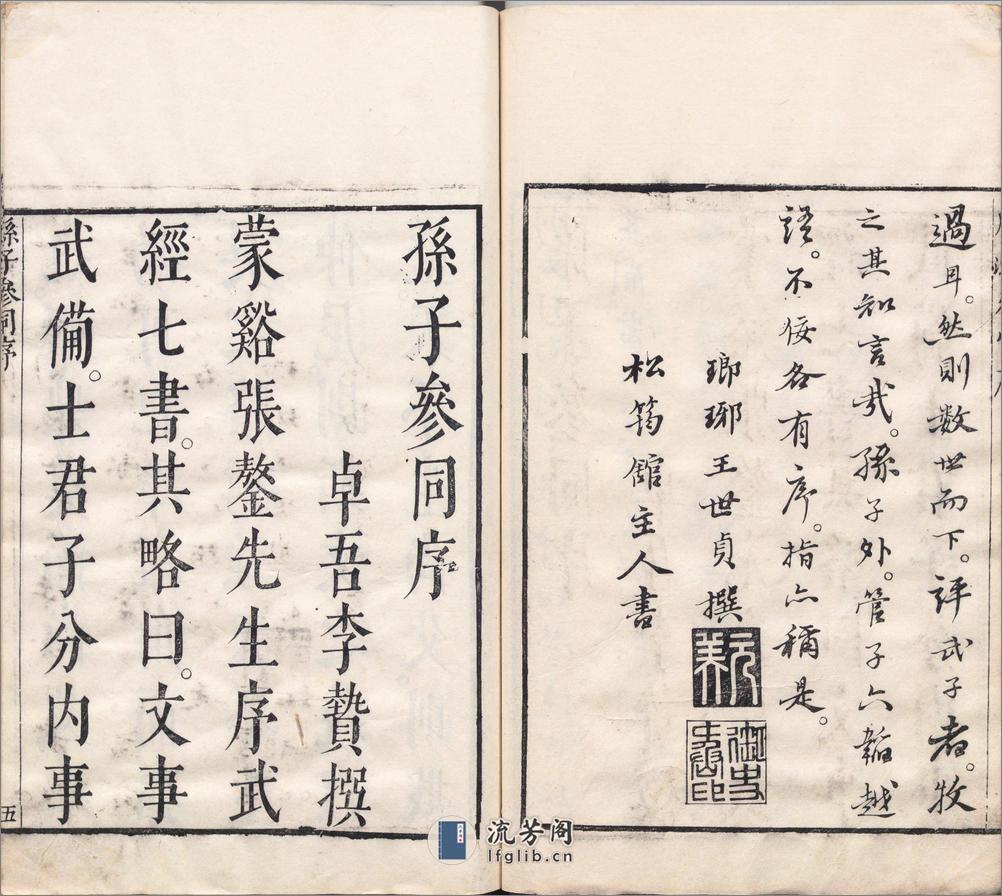 過耳。然則数世而下。評武子者。牧
之其知言哉。孫子外。管子六韜越
語。不佞各有序。指亦稱是。
瑯琊王世貞撰
元美
松筠館主人書
孫子參同序
卓吾李贄撰
蒙谿張鏊先生序武
經七書。其略曰。文事
武備。士君子分内事
孫子參同序
五
流芳阁
lfglib.cn